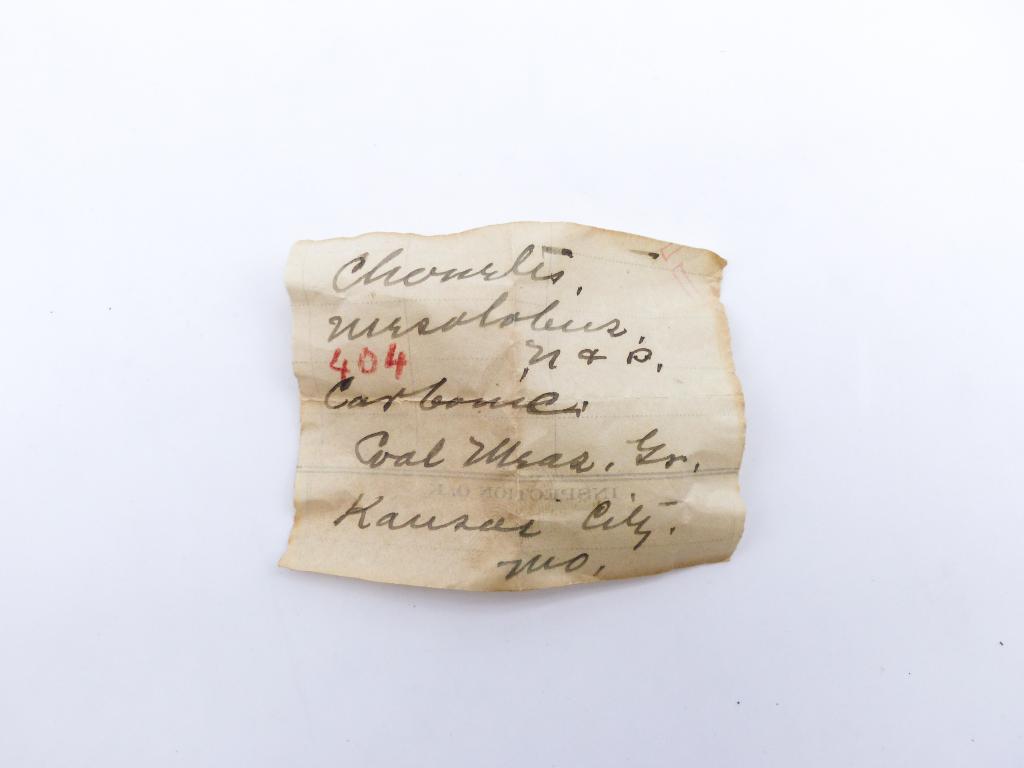 Chonetes,
Mesolobus,
404 N & P.
Carbonic.
Coal Meas. Gr.
INSPECTION O.K.
Kansas City.
Mo.